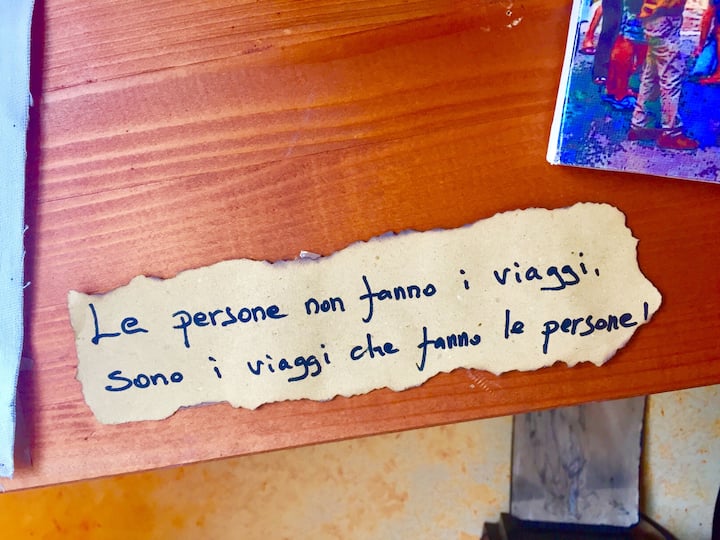 Le persone non fanno i viaggi.
Sono i viaggi che fanno le persone!